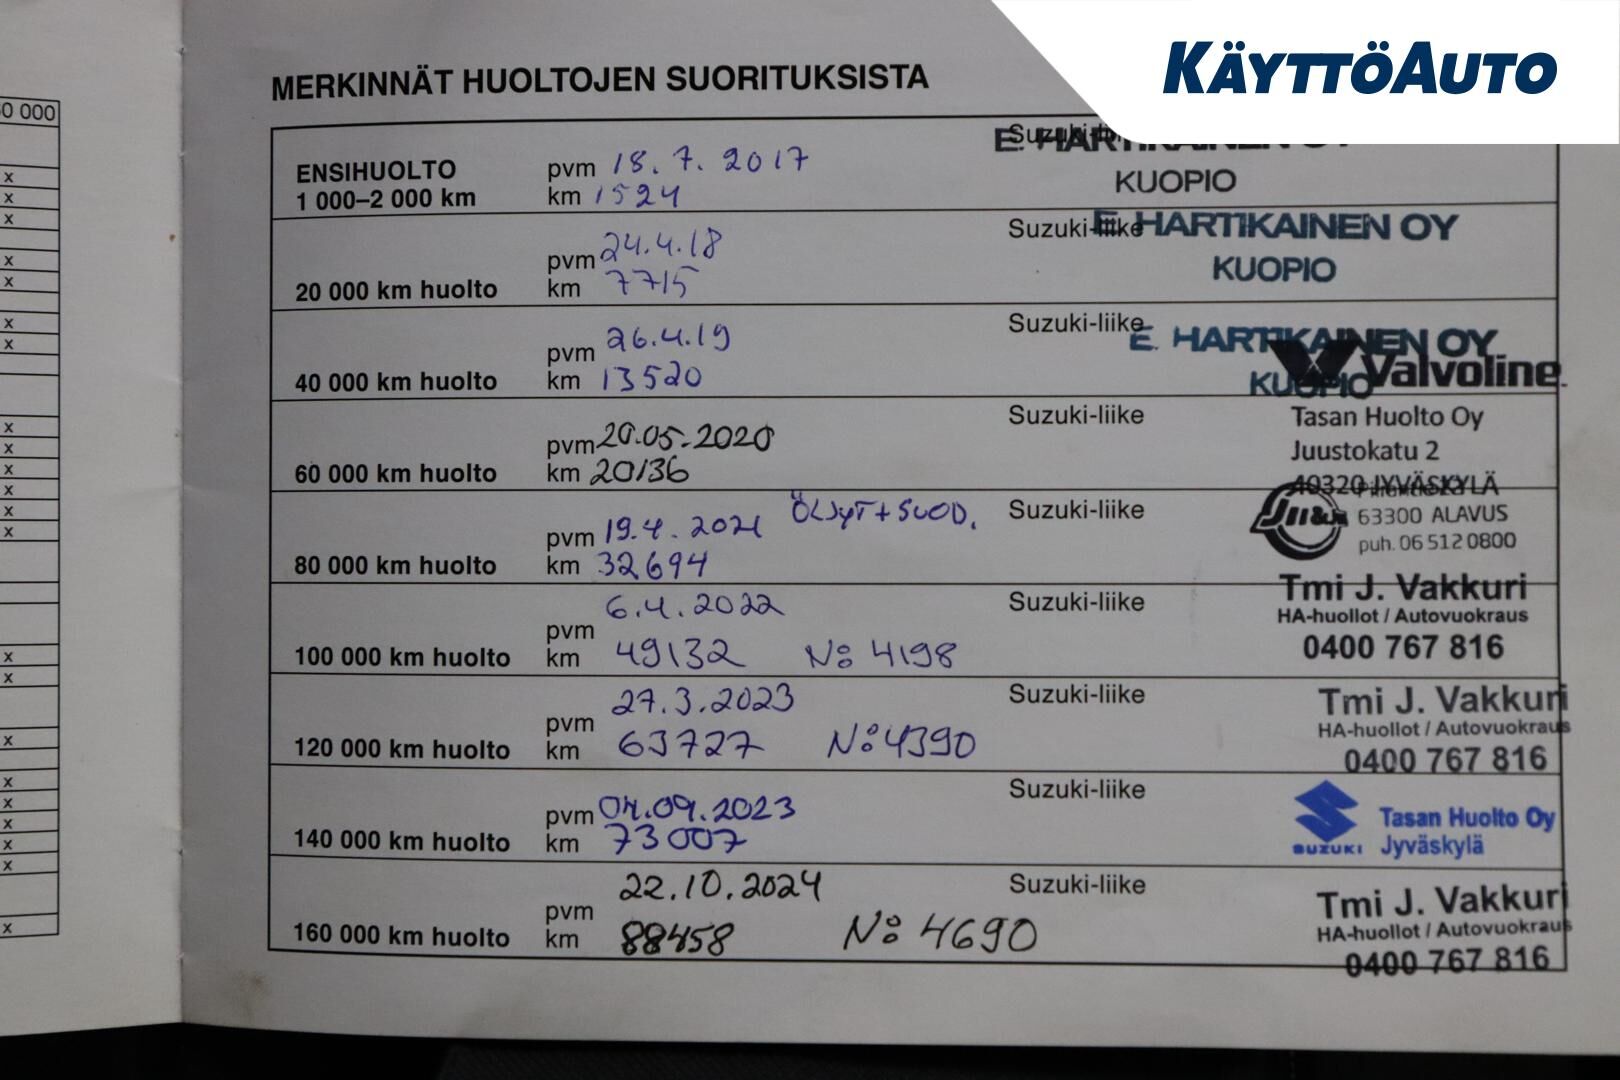 KÄYTTÖAUTO
0 000
MERKINNÄT HUOLTOJEN SUORITUKSISTA
ENSIHUOLTO
1 000–2 000 km
pvm 18.7.2017
km 1524
E. HARTIKAINEN OY
KUOPIO
20 000 km huolto
pvm 24.4.18
km 7715
Suzuki-liike
E. HARTIKAINEN OY
KUOPIO
40 000 km huolto
pvm 26.4.19
km 13520
Suzuki-liike
E. HARTIKAINEN OY
KUOPIO
Valvoline
60 000 km huolto
pvm 20.05.2020
km 20136
Suzuki-liike
Tasan Huolto Oy
Juustokatu 2
40320 JYVÄSKYLÄ
80 000 km huolto
pvm 19.4.2021 ÖLJYT + SUOD.
km 32694
Suzuki-liike
63300 ALAVUS
puh. 06 512 0800
100 000 km huolto
pvm 6.4.2022
km 49132 No: 4198
Suzuki-liike
Tmi J. Vakkuri
HA-huollot / Autovuokraus
0400 767 816
120 000 km huolto
pvm 27.3.2023
km 63727 No: 4390
Suzuki-liike
Tmi J. Vakkuri
HA-huollot / Autovuokraus
0400 767 816
140 000 km huolto
pvm 04.09.2023
km 73007
Suzuki-liike
SUZUKI
Tasan Huolto Oy
Jyväskylä
160 000 km huolto
pvm 22.10.2024
km 88458 No: 4690
Suzuki-liike
Tmi J. Vakkuri
HA-huollot / Autovuokraus
0400 767 816